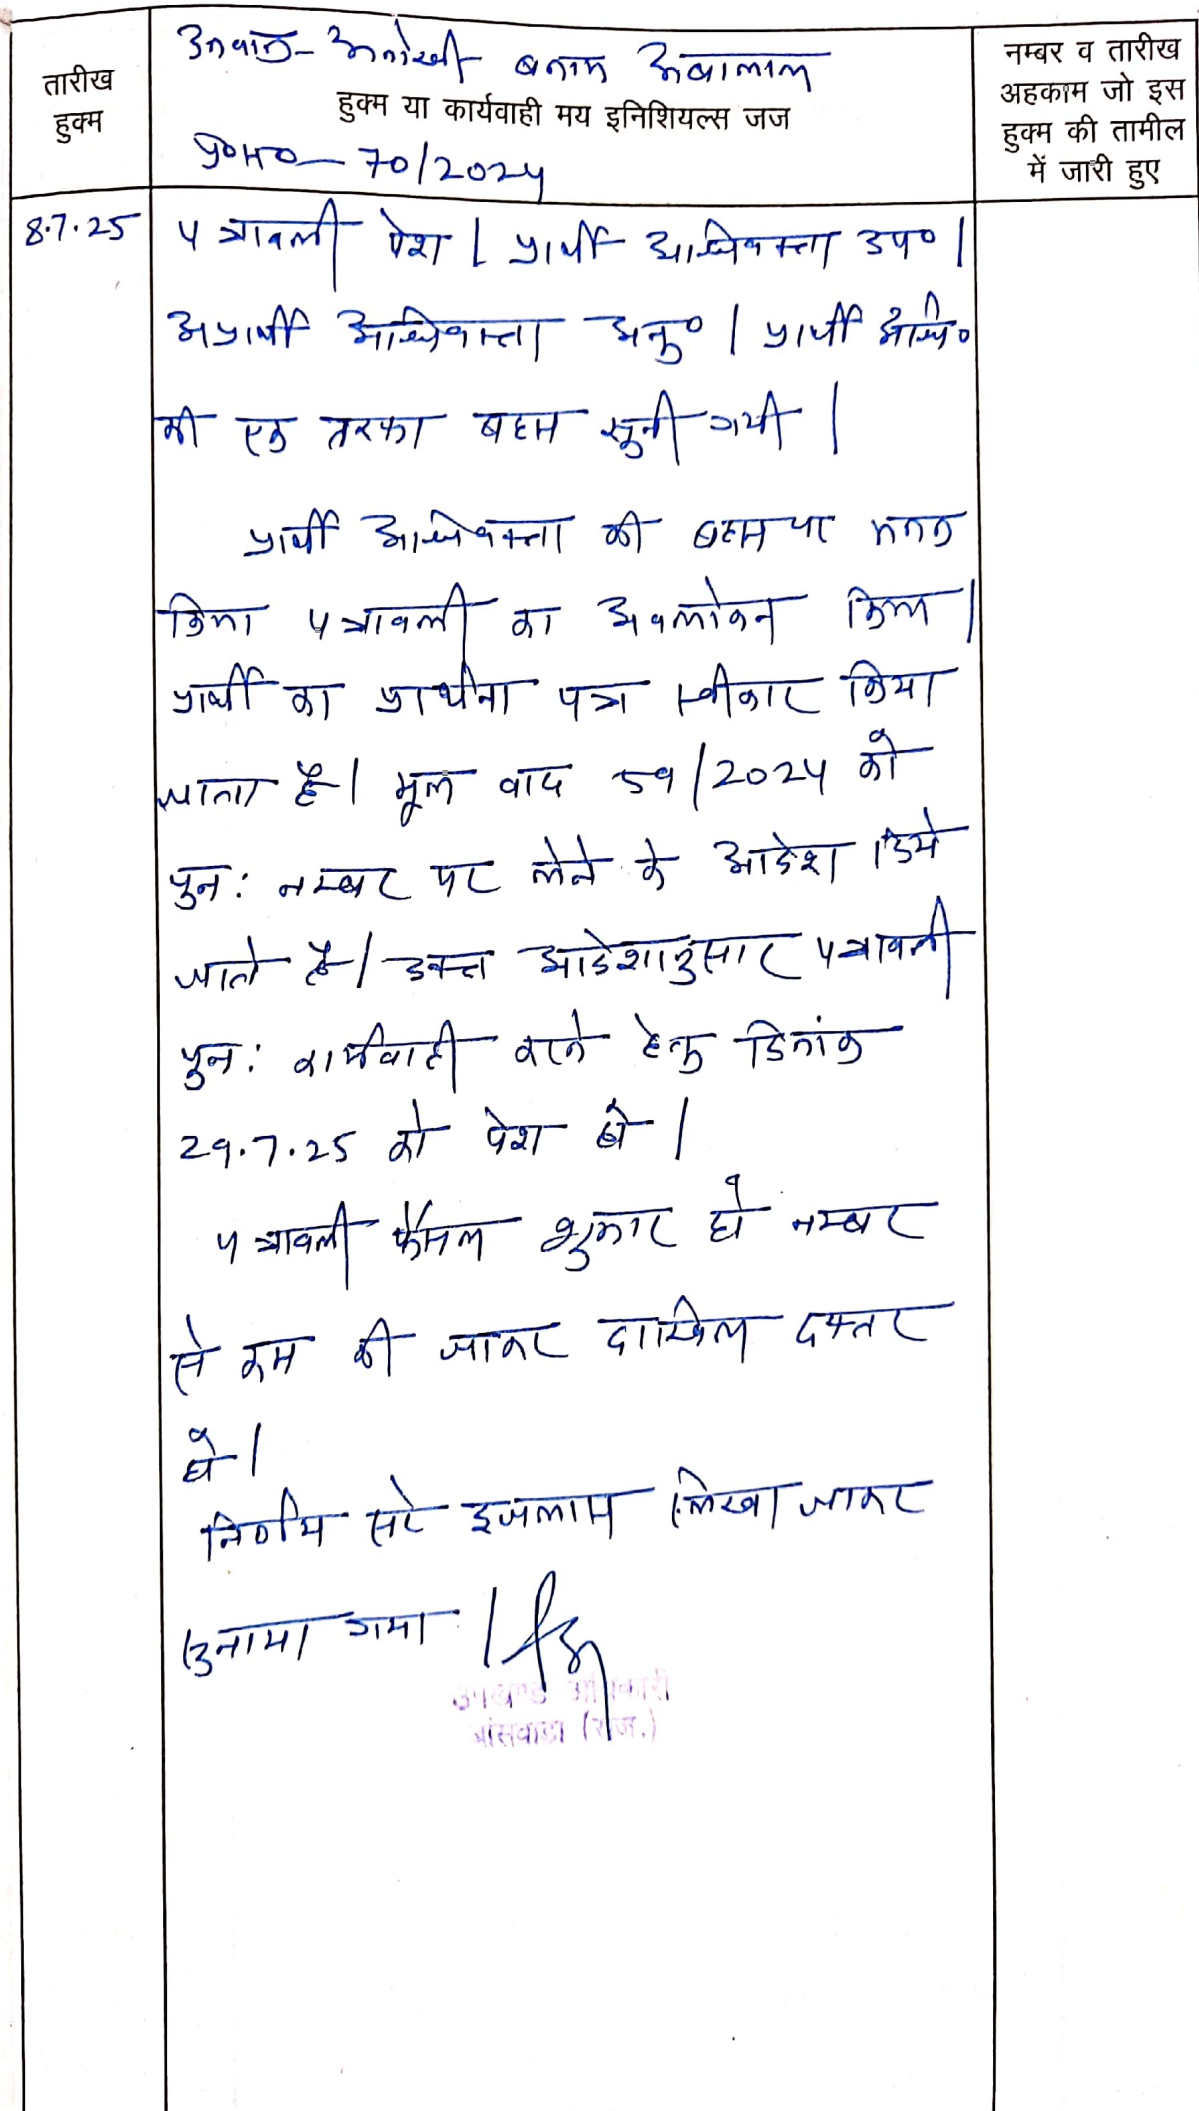 तारीख
हुक्म
उनवान - अनोखी बनाम अंबालाल
हुक्म या कार्यवाही मय इनिशियल्स जज
प्र०स०- 70/2024
नम्बर व तारीख
अहकाम जो इस
हुक्म की तामील
में जारी हुए
8.7.25
पत्रावली पेश । प्रार्थी अधिवक्ता उप० ।
अप्रार्थी अधिवक्ता अनु० । प्रार्थी अधि०
की एक तरफा बहस सुनी गयी ।
प्रार्थी अधिवक्ता की बहस पर मनन
किया पत्रावली का अवलोकन किया ।
प्रार्थी का प्रार्थना पत्र स्वीकार किया
जाता है । मूल वाद 59/2024 को
पुन: नम्बर पर लेने के आदेश दिये
जाते है । उक्त आदेशानुसार पत्रावली
पुन: कार्यवाही करने हेतु दिनांक
29.7.25 को पेश हो ।
पत्रावली फैसल शुमार हो नम्बर
से कम की जाकर दाखिल दफ्तर
हो ।
निर्णय सरे इजलास लिखा जाकर
सुनाया गया ।
उपखण्ड अधिकारी
बांसवाडा (राज.)